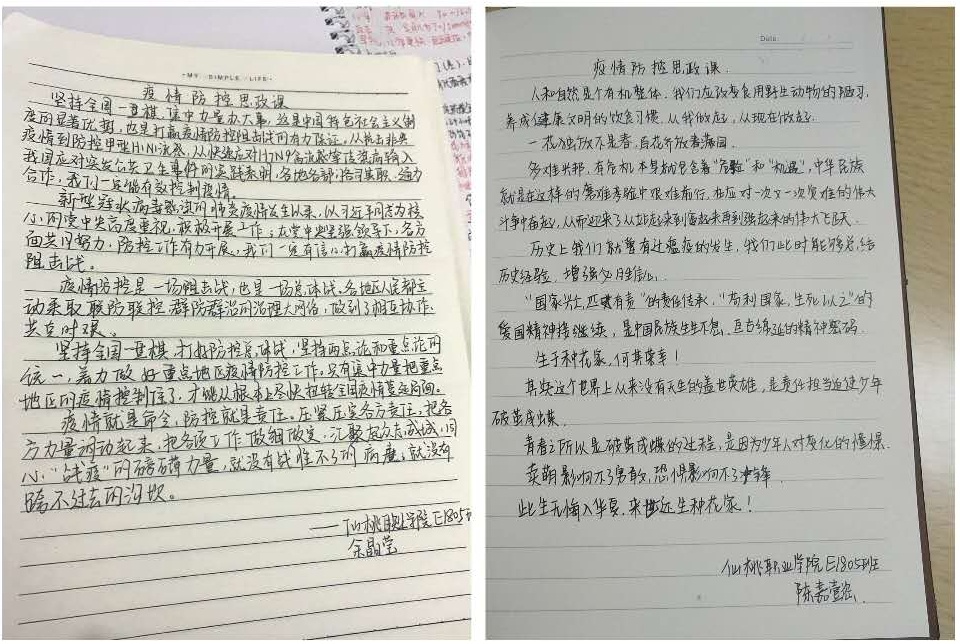 ·MY SIMPLE LIFE·
疫情防控思政课
坚持全国一盘棋,集中力量办大事,这是中国特色社会主义制
度的显著优势,也是打赢疫情防控阻击战的有力保证。从抗击非典
疫情到防控甲型H1N1流感,从快速应对H7N9禽流感等传染病输入
我国应对突发公共卫生事件的实践表明,各地各部,恪守其职、通力
合作,我们一定能有效控制疫情。
新型冠状病毒感染的肺炎疫情发生以来,以习近平同志为核
心的党中央高度重视,积极开展工作;在党中央坚强领导下,各方
面共同努力,防控工作有力开展,我们一定有信心打赢疫情防控
阻击战。
疫情防控是一场阻击战,也是一场总体战。各地区人民都主
动采取联防联控、群防群治的治理大网络,做到了相互协作、
共克时艰。
坚持全国一盘棋,打好防控总体战,坚持两点论和重点论的
统一,着力做好重点地区疫情防控工作,只有集中力量把重点
地区的疫情控制住了,才能从根本上尽快扭转全国疫情蔓延局面。
疫情就是命令,防控就是责任。压紧压实各方责任,把各
方力量调动起来,把各项工作做细做实,汇聚起众志成城,同
心“战疫”的磅礴力量,就没有战胜不了的病魔,就没有
跨不过去的沟坎。
——仙桃职业学院E1805班
余晶莹
Date
疫情防控思政课.
人和自然是个有机整体.我们应改变食用野生动物的陋习,
养成健康文明的饮食习惯,从我做起,从现在做起.
一花独放不是春,百花齐放春满园.
多难兴邦,有危机本身就包含着“危险”和“机遇”,中华民族
就是在这样的磨难考验中艰难前行,在应对一次又一次灾难的伟大
斗争中奋起,从而迎来了从站起来到富起来再到强起来的伟大飞跃.
历史上我们就曾有过瘟疫的发生,我们此时能够总结
历史经验,增强必胜信心.
“国家兴亡,匹夫有责”的责任传承,“苟利国家,生死以之”的
爱国精神接继续,是中国民族生生不息、亘古绵延的精神密码.
生于种花家,何其荣幸!
其实这个世界上从来没有天生的盖世英雄,是责任担当迫使少年
破茧成蝶.
青春之所以是破茧成蝶的过程,是因为少年人对变化的憧憬.
卖萌影响不了勇敢,恐惧影响不了冲锋.
此生无悔入华夏,来世还生种花家!
仙桃职业学院E1805班
陈嘉